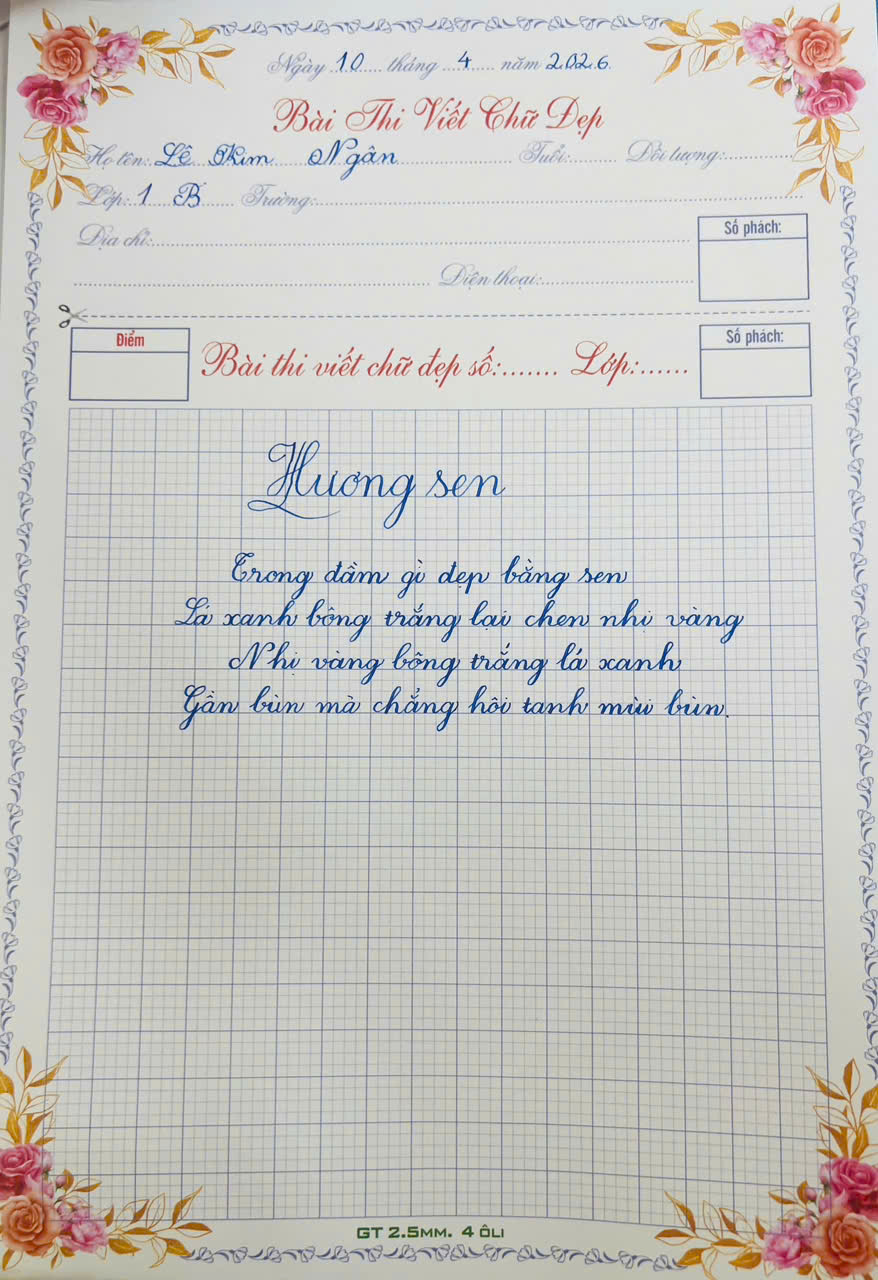 Ngày 10 tháng 4 năm 2026
Bài Thi Viết Chữ Đẹp
Họ tên: Lê Kim Ngân Tuổi: Đối tượng:
Lớp: 1 B Trường:
Địa chỉ:
Số phách:
Điện thoại:
Điểm
Bài thi viết chữ đẹp số: Lớp:
Số phách:
Hương sen
Trong đầm gì đẹp bằng sen
Lá xanh bông trắng lại chen nhị vàng
Nhị vàng bông trắng lá xanh
Gần bùn mà chẳng hôi tanh mùi bùn.
GT 2.5MM. 4 ÔLI